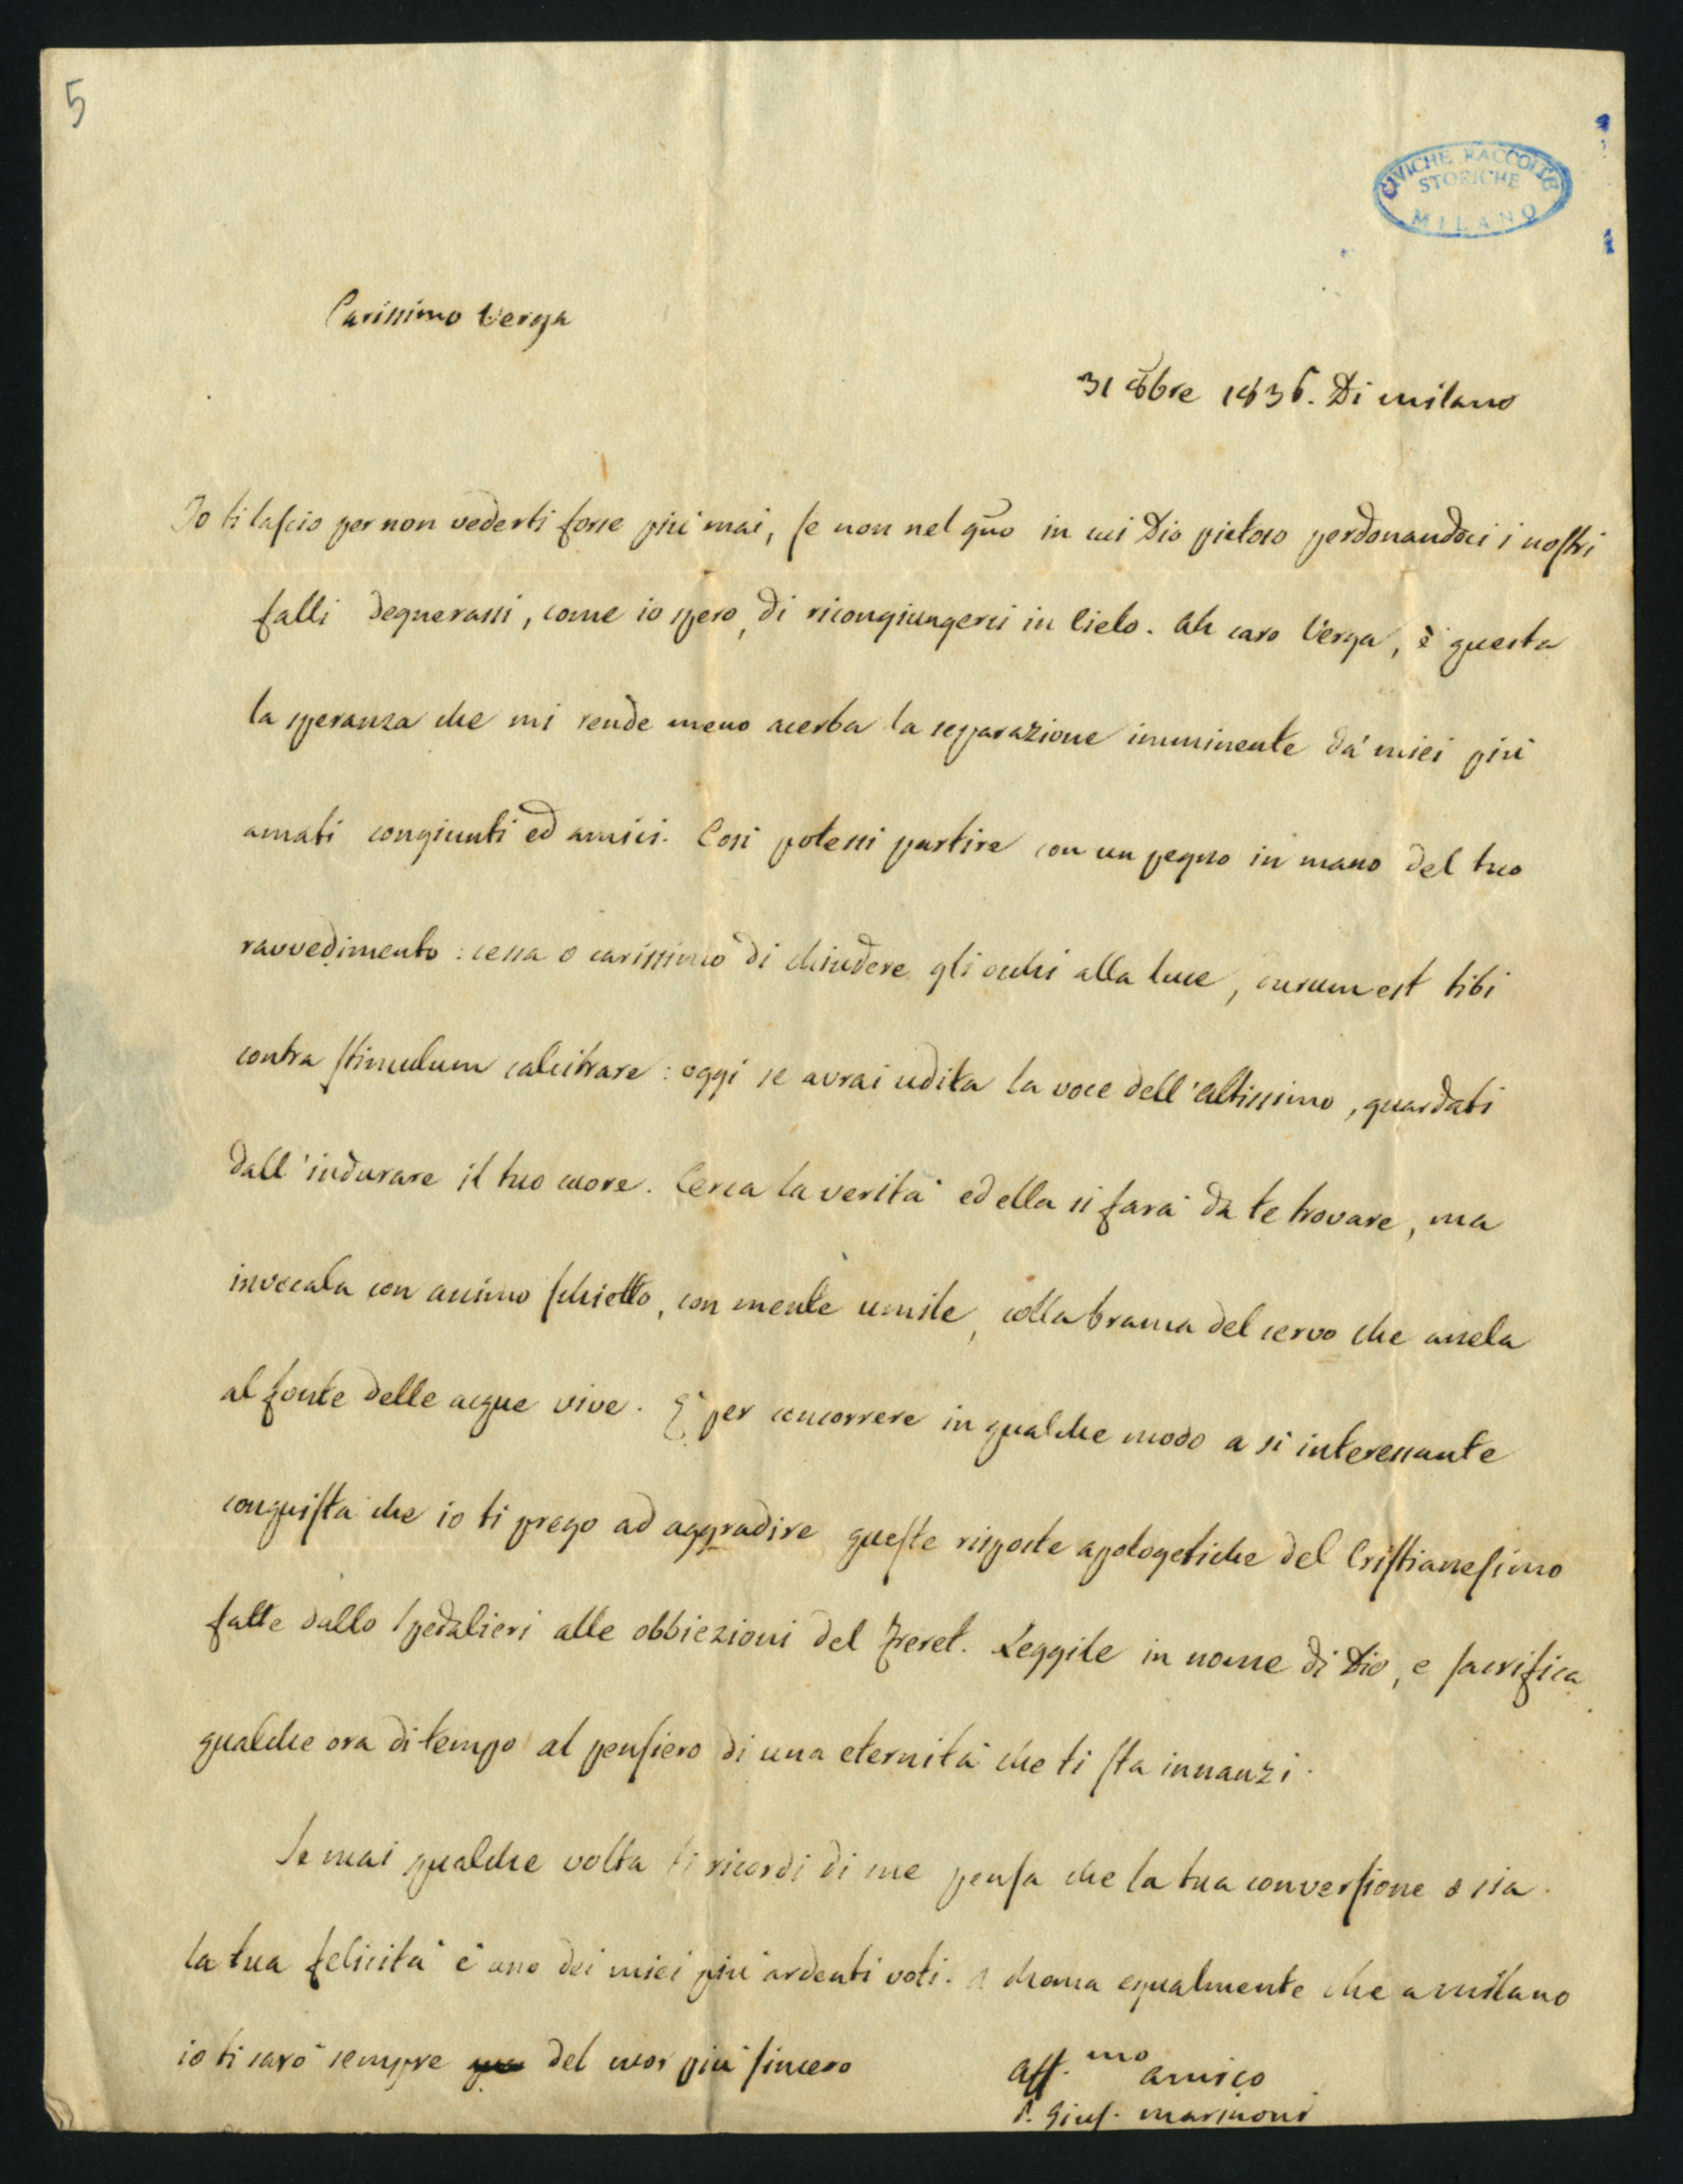 5
CIVICHE RACCOLTE
STORICHE
MILANO
Carissimo Verga
31 8bre 1836. Di Milano
Io ti lascio per non vederti forse più mai, se non nel gño in cui Dio pietoso perdonandoci i nostri
falli degnerassi, come io spero, di ricongiungerci in Cielo. Ah caro Verga, è questa
la speranza che mi rende meno acerba la separazione imminente da' miei più
amati congiunti ed amici. Così potessi partire con un pegno in mano del tuo
ravvedimento: cessa o carissimo di chiudere gli occhi alla luce, durum est tibi
contra stimulum calcitrare: oggi se avrai udita la voce dell'Altissimo, guardati
dall'indurare il tuo cuore. Cerca la verità ed ella si farà da te trovare, ma
invocala con animo schietto, con mente umile, colla brama del cervo che anela
al fonte delle acque vive. È per concorrere in qualche modo a sì interessante
conquista che io ti prego ad aggradire queste risposte apologetiche del Cristianesimo
fatte dallo Spedalieri alle obbiezioni del Freret. Leggile in nome di Dio, e sacrifica
qualche ora di tempo al pensiero di una eternità che ti sta innanzi.
Se mai qualche volta ti ricordi di me pensa che la tua conversione o sia
la tua felicità è uno dei miei più ardenti voti. A Roma egualmente che a Milano
io ti sarò sempre del cuor più sincero
Aff.mo amico
P. Gius. Marinoni